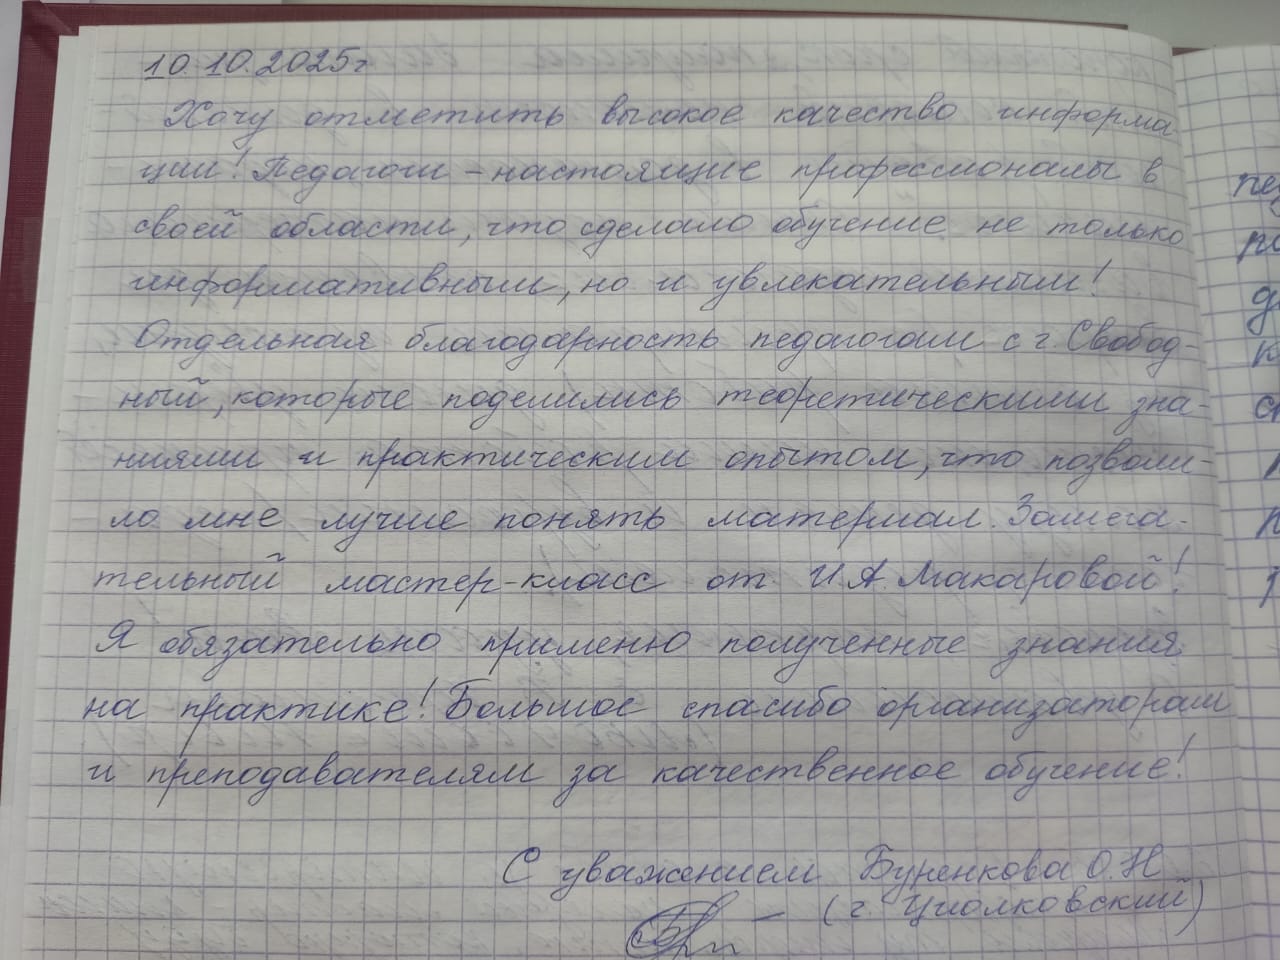 10.10.2025г
Хочу отметить высокое качество информа-
ции! Педагоги - настоящие профессионалы в
своей области, что сделало обучение не только
информативным, но и увлекательным!
Отдельная благодарность педагогам с г. Свобод-
ный, которые поделились теоретическими зна-
ниями и практическим опытом, что позволи-
ло мне лучше понять материал. Замеча-
тельный мастер-класс от И.А. Макаровой!
Я обязательно применю полученные знания
на практике! Большое спасибо организаторам
и преподавателям за качественное обучение!
С уважением Буренкова О.Н
(г. Циолковский)